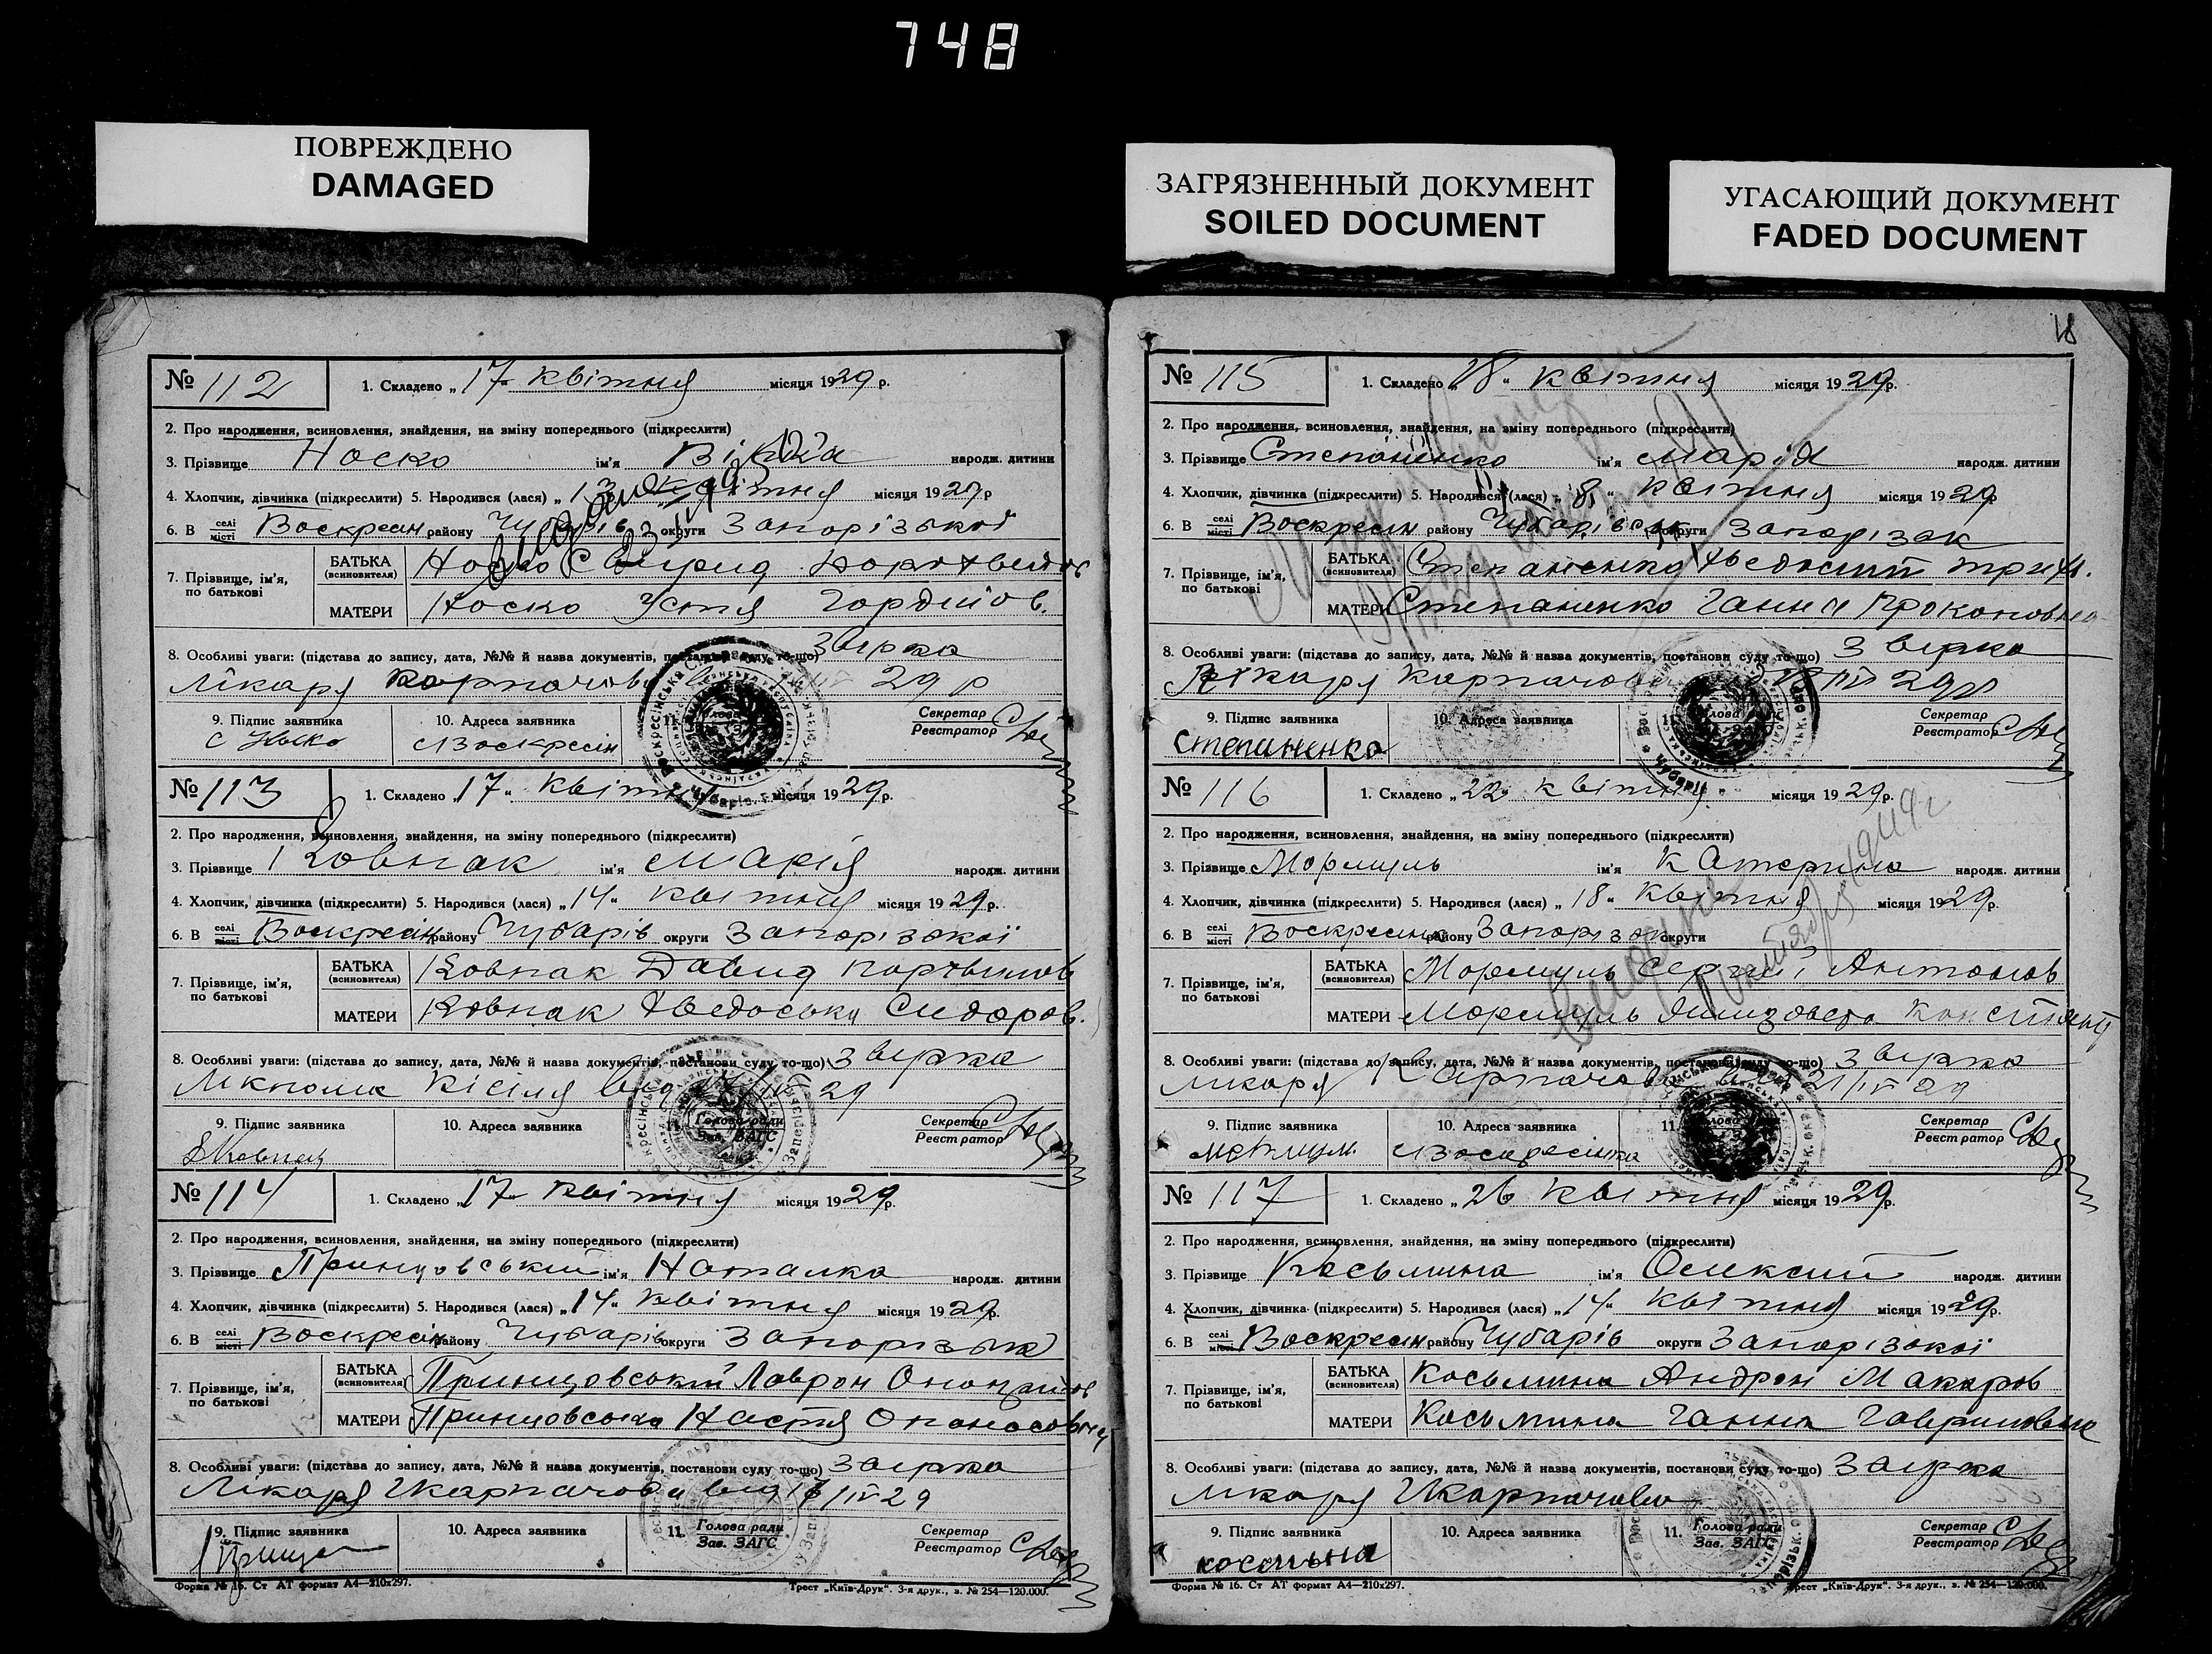 748
ПОВРЕЖДЕНО
DAMAGED
ЗАГРЯЗНЕННЫЙ ДОКУМЕНТ
SOILED DOCUMENT
УГАСАЮЩИЙ ДОКУМЕНТ
FADED DOCUMENT
№ 112 1. Складено „17" квітня місяця 1929 р.
2. Про народження, всиновлення, знайдення, на зміну попереднього (підкреслити)
3. Прізвище Носко ім'я народж. дитини
4. Хлопчик, дівчинка (підкреслити) 5. Народився (лася) „13" квітня місяця 1929 р
6. В селі місті Воскресін району Чубарів округи Запорізької
7. Прізвище, ім'я, по батькові
БАТЬКА (всиновителя) Носко Свирид
МАТЕРИ Носко Устя Гордійов.
8. Особливі уваги: (підстава до запису, дата, №№ й назва документів, постанови суду то-що) звірка
лікаря Карпачова 29 р
9. Підпис заявника 10. Адреса заявника 11. Голова Секретар Реєстратор
С Носко с Воскресін
№ 113 1. Складено „17" квітня місяця 1929 р.
2. Про народження, всиновлення, знайдення, на зміну попереднього (підкреслити)
3. Прізвище Ковпак ім'я Марія народж. дитини
4. Хлопчик, дівчинка (підкреслити) 5. Народився (лася) „14" квітня місяця 1929 р.
6. В селі місті Воскресін району Чубарів округи Запорізької
7. Прізвище, ім'я, по батькові
БАТЬКА (всиновителя) Ковпак Давид
МАТЕРИ Ковпак Хведоська Сидоров.
8. Особливі уваги: (підстава до запису, дата, №№ й назва документів, постанови суду то-що) звірка
від 29
9. Підпис заявника 10. Адреса заявника 11. Голова ради Зав. ЗАГС Секретар Реєстратор
Ковпак
№ 114 1. Складено „17" квітня місяця 1929 р.
2. Про народження, всиновлення, знайдення, на зміну попереднього (підкреслити)
3. Прізвище Принцовський ім'я Наталка народж. дитини
4. Хлопчик, дівчинка (підкреслити) 5. Народився (лася) „14" квітня місяця 1929 р.
6. В селі місті Воскресін району Чубарів округи Запорізьк
7. Прізвище, ім'я, по батькові
БАТЬКА (всиновителя) Принцовський Лаврон
МАТЕРИ Принцовська Настя Опанасовна
8. Особливі уваги: (підстава до запису, дата, №№ й назва документів, постанови суду то-що) звірка
лікаря Карпачова від IV 29
9. Підпис заявника 10. Адреса заявника 11. Голова ради Зав. ЗАГС Секретар Реєстратор
Форма № 16. Ст АТ формат А4—210х297. Трест „Київ-Друк". 3-я друк., з. № 254—120.000.
18
№ 115 1. Складено „18" квітня місяця 1929 р.
2. Про народження, всиновлення, знайдення, на зміну попереднього (підкреслити)
3. Прізвище Степаненко ім'я Марія народж. дитини
4. Хлопчик, дівчинка (підкреслити) 5. Народився (лася) „8" квітня місяця 1929 р
6. В селі місті Воскресін району Чубарівськ округи Запорізьк
7. Прізвище, ім'я, по батькові
БАТЬКА (всиновителя) Степаненко Хведосий
МАТЕРИ Степаненко Ганна Прокоповна
8. Особливі уваги: (підстава до запису, дата, №№ й назва документів, постанови суду то-що) звірка
лікаря Карпачова IV 29 р
9. Підпис заявника 10. Адреса заявника 11. Голова Секретар Реєстратор
Степаненко
№ 116 1. Складено „22" квітня місяця 1929 р.
2. Про народження, всиновлення, знайдення, на зміну попереднього (підкреслити)
3. Прізвище Мормуль ім'я Катерина народж. дитини
4. Хлопчик, дівчинка (підкреслити) 5. Народився (лася) „18" квітня місяця 1929 р.
6. В селі місті Воскресінка району Запорізьк округи
7. Прізвище, ім'я, по батькові
БАТЬКА (всиновителя) Мормуль Сергій Антонов
МАТЕРИ Мормуль
8. Особливі уваги: (підстава до запису, дата, №№ й назва документів, постанови суду то-що) звірка
лікаря Карпачова 21/IV 29
9. Підпис заявника 10. Адреса заявника 11. Голова Секретар Реєстратор
с Воскресінка
№ 117 1. Складено „26" квітня місяця 1929 р.
2. Про народження, всиновлення, знайдення, на зміну попереднього (підкреслити)
3. Прізвище Косьмина ім'я Олексий народж. дитини
4. Хлопчик, дівчинка (підкреслити) 5. Народився (лася) „14" квітня місяця 1929 р.
6. В селі місті Воскресін району Чубарів округи Запорізької
7. Прізвище, ім'я, по батькові
БАТЬКА (всиновителя) Косьмина Андрій Макаров
МАТЕРИ Косьмина Ганна Гавриловна
8. Особливі уваги: (підстава до запису, дата, №№ й назва документів, постанови суду то-що) звірка
лікаря Карпачова
9. Підпис заявника 10. Адреса заявника 11. Голова ради Зав. ЗАГС Секретар Реєстратор
косьмына
Форма № 16. Ст АТ формат А4—210х297. Трест „Київ-Друк". 3-я друк., з. № 254—120.000.